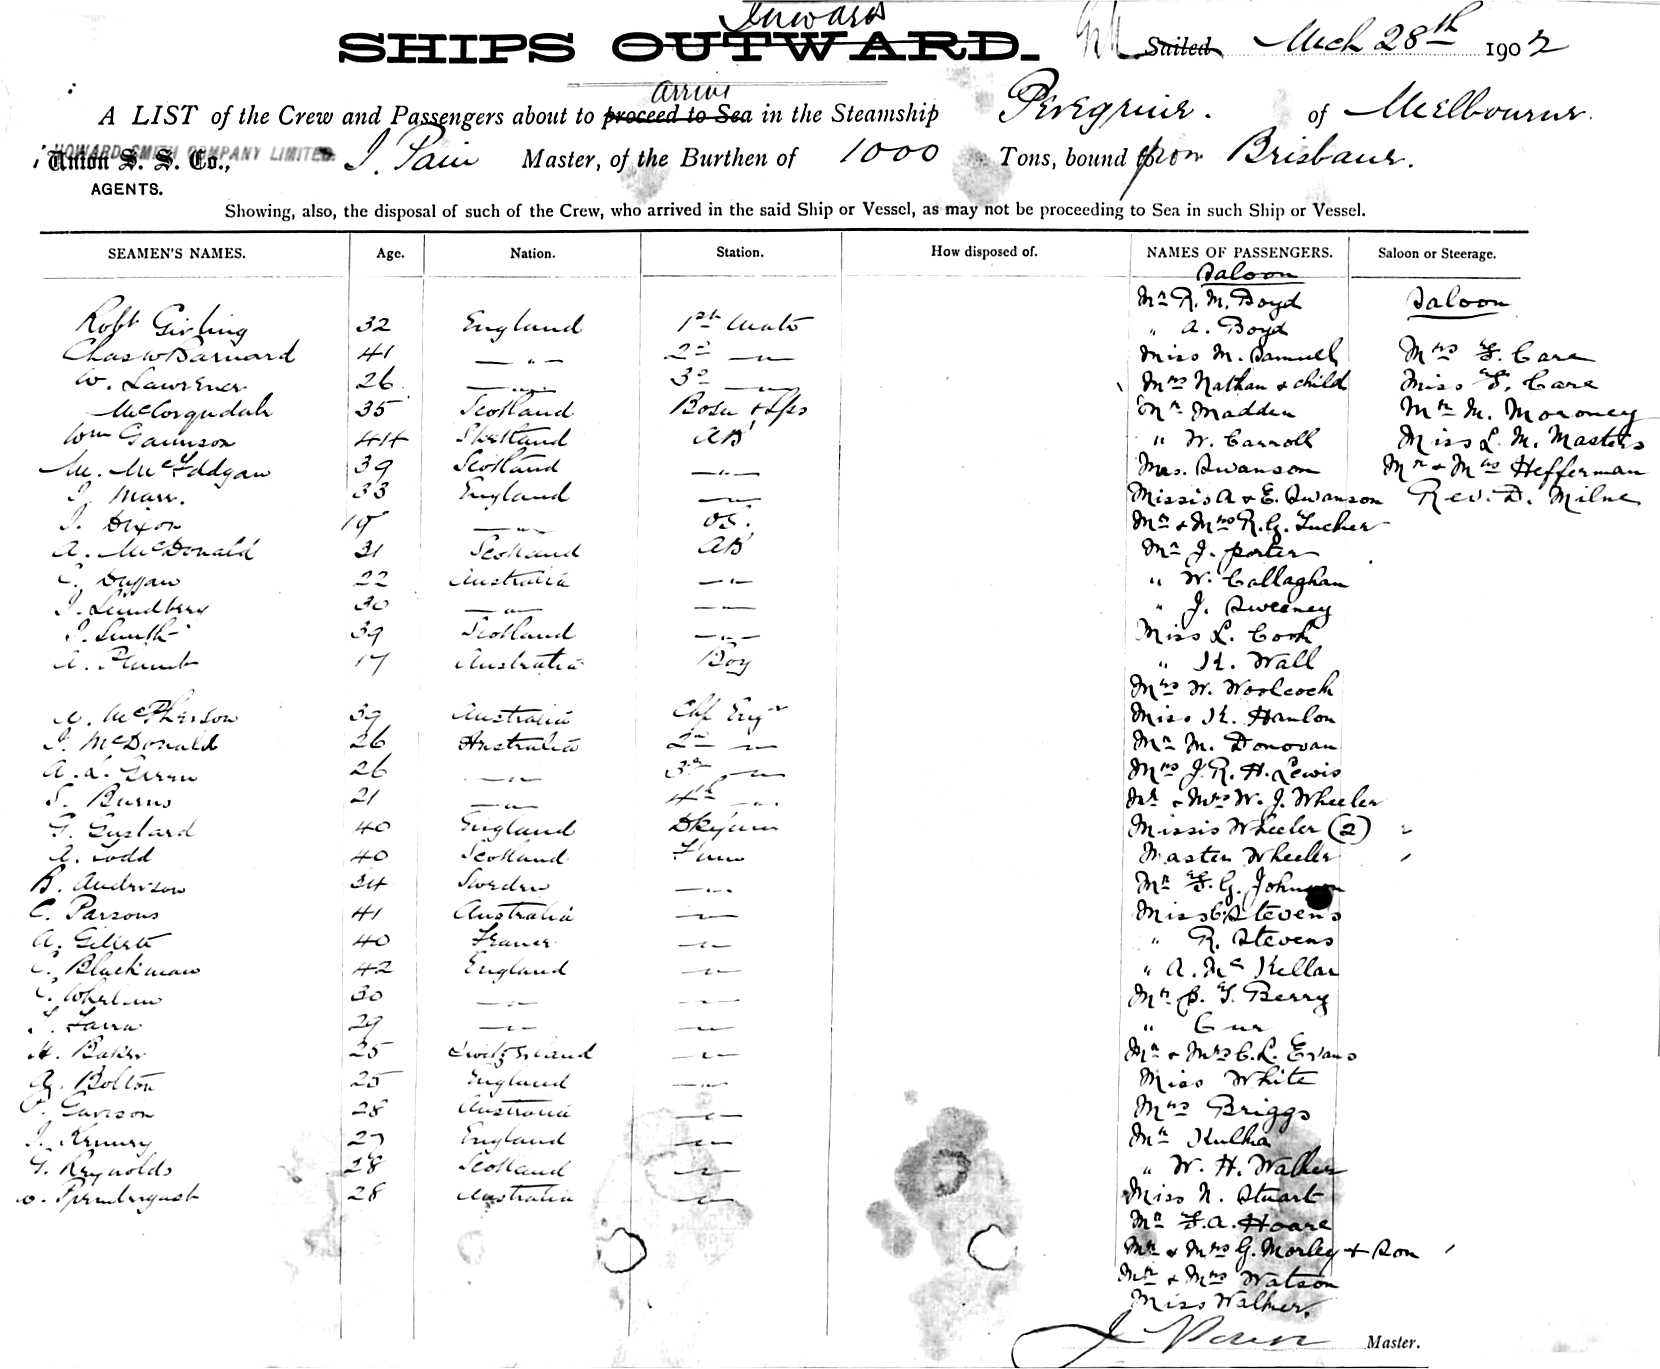 Inwards
SHIPS OUTWARD.
Sailed Mch 28th 1902
arrive
A LIST of the Crew and Passengers about to proceed to Sea in the Steamship Peregrine. of Melbourne.
HOWARD SMITH COMPANY LIMITED
Union S. S. Co., J. Pain Master, of the Burthen of 1000 Tons, bound from Brisbane.
AGENTS.
Showing, also, the disposal of such of the Crew, who arrived in the said Ship or Vessel, as may not be proceeding to Sea in such Ship or Vessel.
SEAMEN'S NAMES. Age. Nation. Station. How disposed of. NAMES OF PASSENGERS. Saloon or Steerage.
Robt Girling 32 England 1st Mate
Chas W Barnard 41 — " — 2nd — " —
W. Lawrence 26 — " — 3rd — " —
McCorqudale 35 Scotland Bosn & Lps
Wm Gaunson 44 Shetland AB
M. McFddgan 39 Scotland — " —
J. Marr. 33 England — " —
J. Dixon 19 — " — OS.
A. McDonald 31 Scotland AB
C. Dugan 22 Australia — " —
J. Lundberg 30 — " — — " —
J. Smith 39 Scotland — " —
A. Plumb 17 Australia Boy
A. McPherson 39 Australia Chf Engr
J. McDonald 26 Australia 2nd — " —
A. L. Green 26 — " — 3rd — " —
S. Burns 21 — " — 4th — " —
G. Gustard 40 England Dkyman
A. Todd 40 Scotland Fmn
B. Anderson 34 Sweden — " —
C. Parsons 41 Australia — " —
A. Gillett 40 France — " —
C. Blackman 42 England — " —
C. Whelan 30 — " — — " —
J. Farra 29 — " — — " —
H. Baker 25 Switzerland — " —
A. Bolton 25 England — " —
Garrson 28 Australia — " —
J. Kenury 27 England — " —
G. Reynolds 28 Scotland — " —
W. Prendergast 28 Australia — " —
Saloon
Mr R. M. Boyd
" A. Boyd
Miss M. Samuell
Mrs Nathan & child
Mr Madden
" W. Carroll
Mrs. Swanson
Missis A & E. Swanson
Mr & Mrs R. G. Tucker
Mr J. porter
" W. Callaghan
" J. Sweeney
Miss L. Cook
" K. Wall
Mrs W. Woolcock
Miss K. Hanlon
Mr M. Donovan
Mrs J. R. H. Lewis
Mr & Mrs W. J. Wheeler
Missis Wheeler (2)
Master Wheeler
Mr F. G. Johnson
Miss C. Stevens
" R. Stevens
" A. Mc Kellar
Mr B. F. Berry
" Cue
Mr & Mrs C. L. Evans
Miss White
Mrs Briggs
Mr Kulha
" W. H. Walker
Miss N. Stuart
Mr F. A. Hoare
Mr & Mrs G. Morley & Son
Mr & Mrs Watson
Miss Walker.
Saloon
Mrs F. Care
Miss F. Care
Mr M. Moroney
Miss L. M. Masters
Mr & Mrs Hefferman
Rev. D. Milne
J Pain Master.